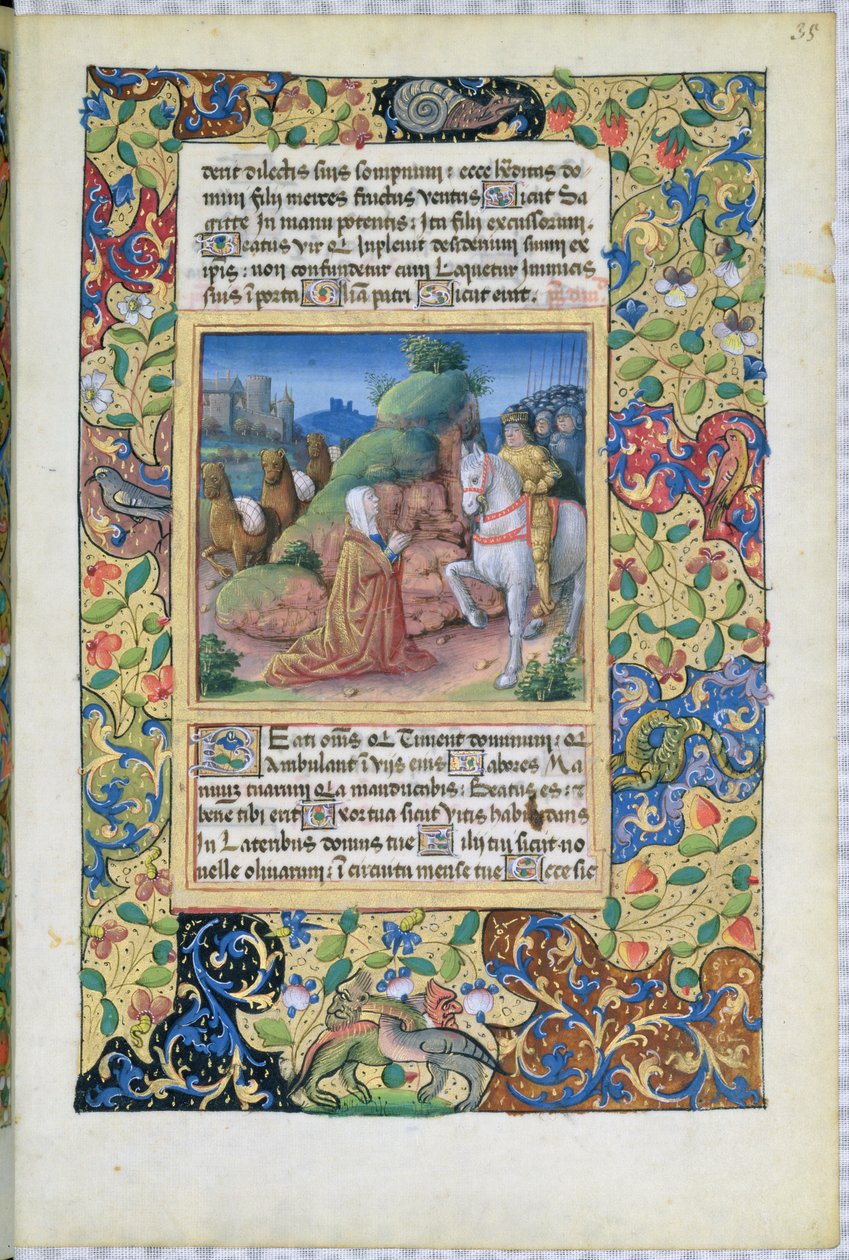 35
derit dilectis suis sompnum : ecce hr̄ditas do
mini filii merces fructus ventris Sicut Sa
gitte In manu potentis : Ita filii excussorum .
Beatus vir Q Inplevit desiderium suum ex
ipis : non confundetur cum Loquetur Inimicis
suis ī porta Gliā patri Sicut erat .
BEati om̄s Q Timent dominum : Q
Ambulant ī vijs eius Labores Ma
nuuꝫ tuarum Qa manducabis : Beatus es : ⁊
bene tibi erit Uxor tua sicut Vitis habūdans
In Lateribus domus tue Filii tui sicut no
uelle oliuarum : ī circuitu mense tue Ecce sic